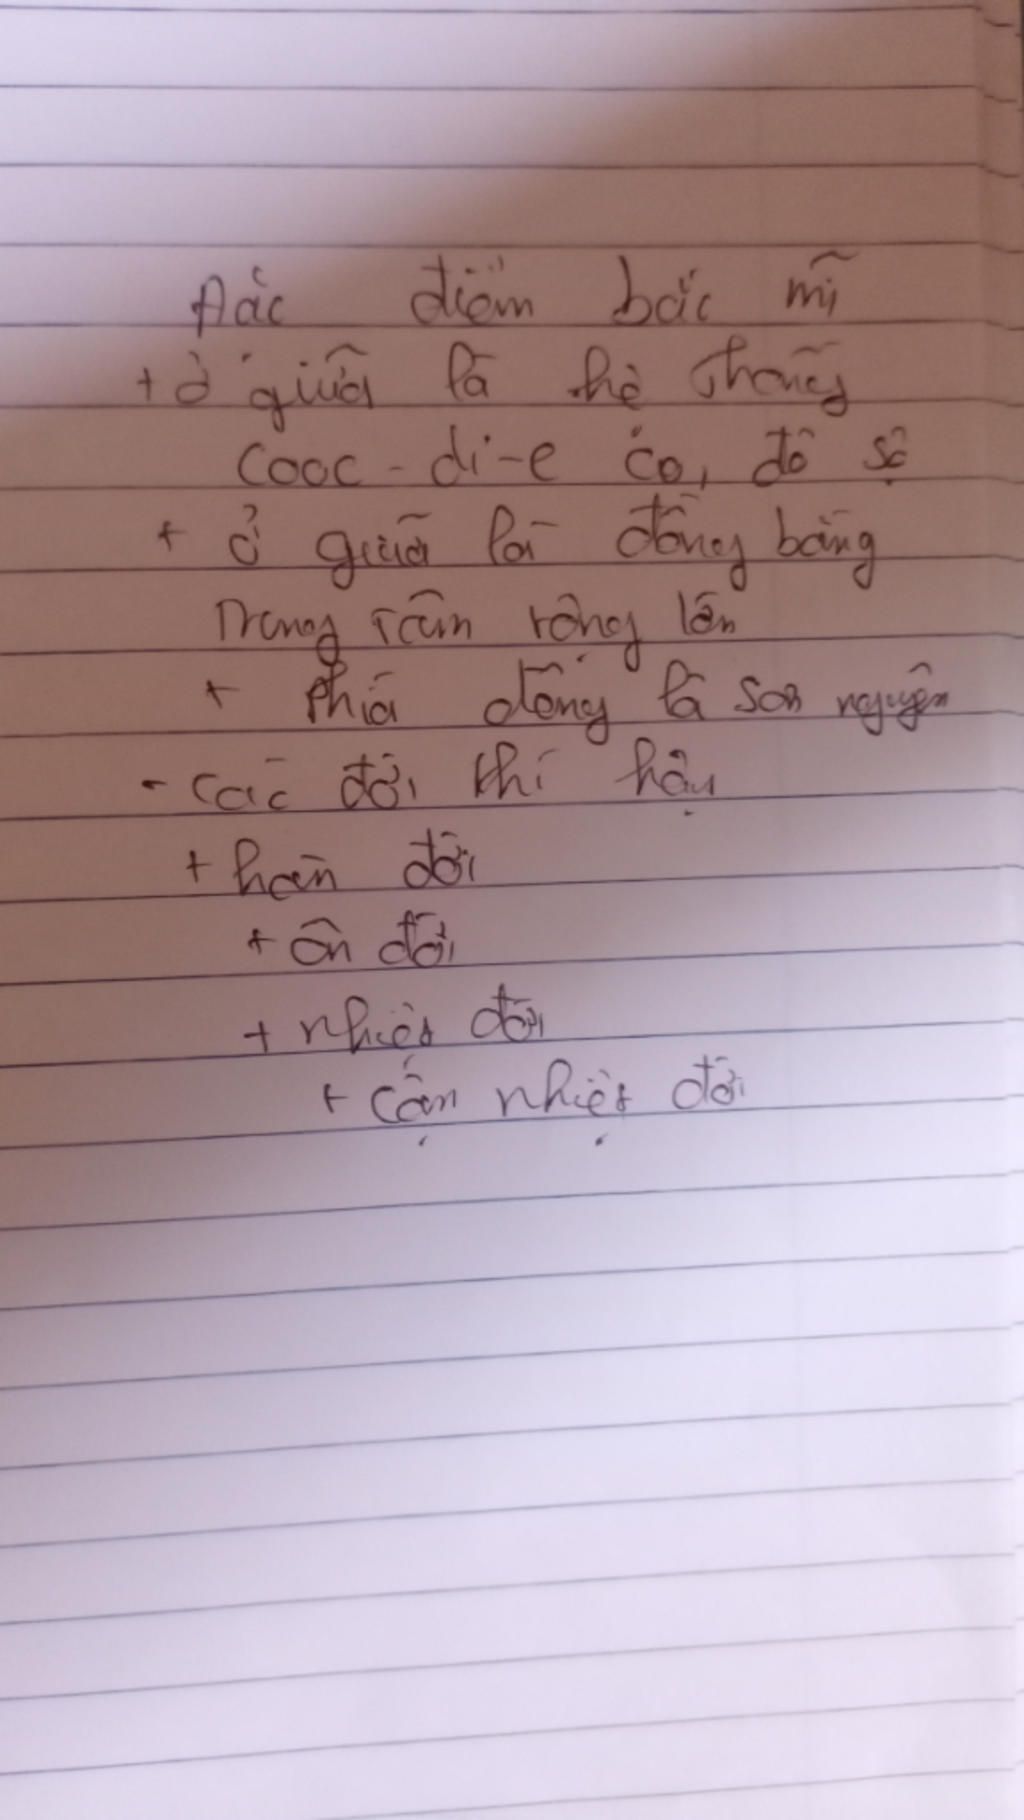 Đặc điểm bắc mĩ
+ ở giữa là hệ thống
Cooc-di-e co, đồ sộ
+ ở giữa là đồng bằng
Trung tâm rộng lớn
+ Phía đông là sơn nguyên
- các đới khí hậu
+ hàn đới
+ ôn đới
+ nhiệt đới
+ cận nhiệt đới